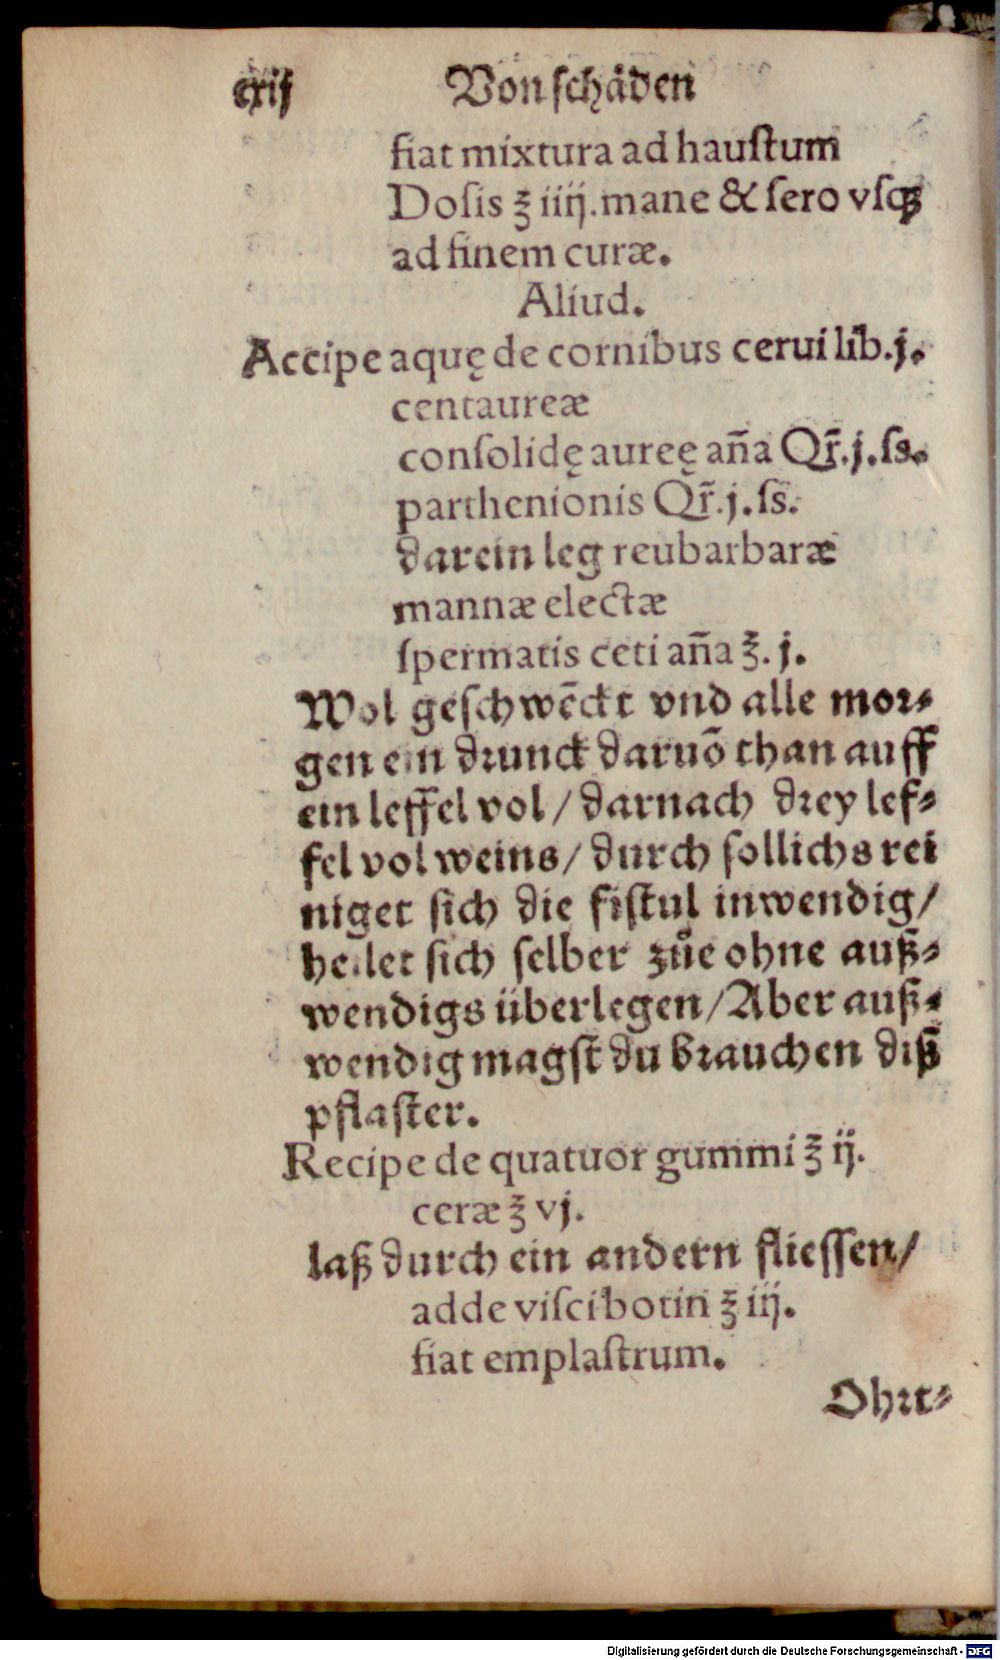 cxij Von schäden
fiat mixtura ad haustum
Dosis ℥ iiij. mane & sero vsqꝫ
ad finem curæ.
Aliud.
Accipe aquę de cornibus cerui lib. j.
centaureæ
consolidę aureę an̄a Qr̄. j. ſs.
parthenionis Qr̄. j. ſs.
darein leg reubarbaræ
mannæ electæ
spermatis ceti an̄a ℥. j.
Wol geschwēckt vnd alle mor⸗
gen ein drunck daruō than auff
ein leffel vol / darnach drey lef⸗
fel vol weins / durch sollichs rei
niget sich die fistul inwendig /
heilet sich selber zůe ohne auß⸗
wendigs überlegen / Aber auß⸗
wendig magst du brauchen diß
pflaster.
Recipe de quatuor gummi ℥ ij.
ceræ ℥ vj.
laß durch ein andern fliessen /
adde visci botin ℥ iij.
fiat emplastrum.
Ohrt⸗
Digitalisierung gefördert durch die Deutsche Forschungsgemeinschaft - DFG